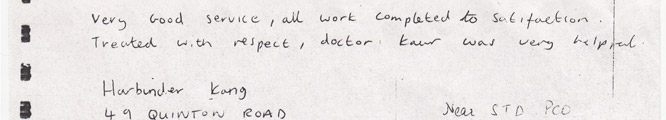 Very Good service, all work completed to satifaction.
Treated with respect, doctor kaur was very helpful.
Harbinder Kang
49 QUINTON ROAD Near STD PCO